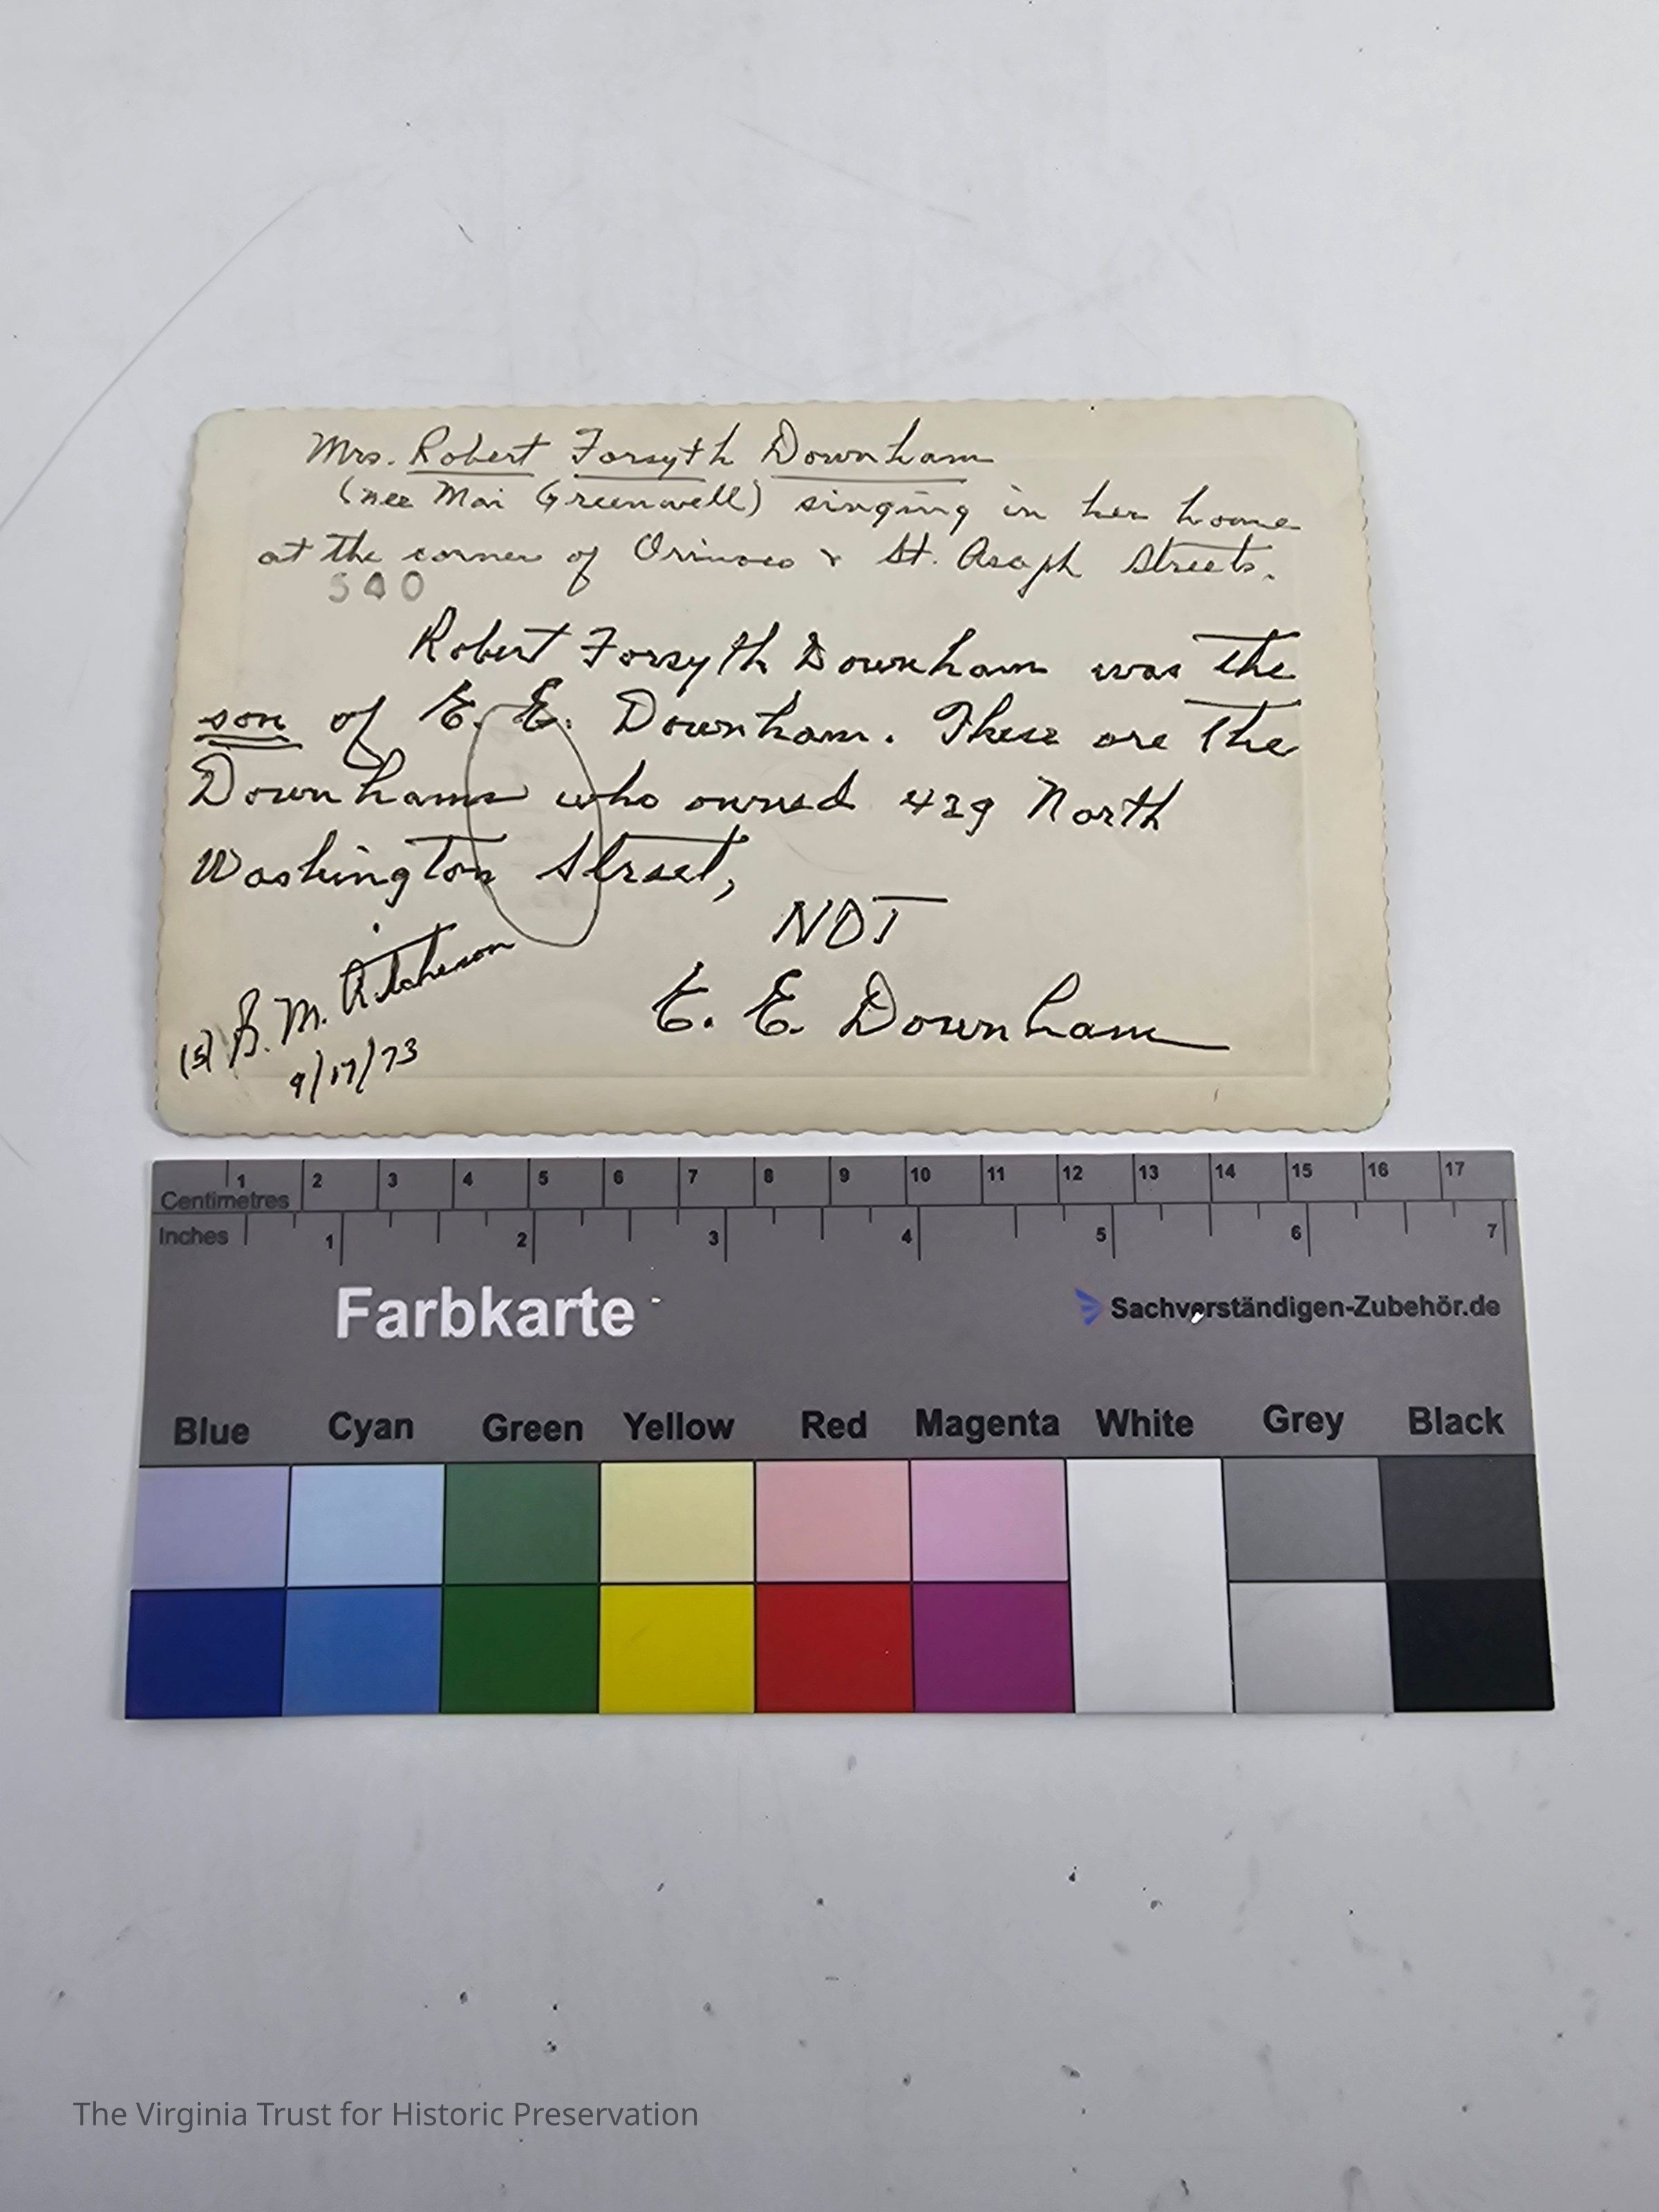 Mrs. Robert Forsyth Downham
(nee Mai Greenwell) singing in her home
at the corner of Orinoco & St. Asaph Streets.
500
Robert Forsyth Downham was the
son of E. E. Downham. These are the
Downhams who owned 429 North
Washington Street,
NOT
E. E. Downham
(s) B. M. Aitcheson
9/17/73
1 2 3 4 5 6 7 8 9 10 11 12 13 14 15 16 17
Centimetres
Inches 1 2 3 4 5 6 7
Farbkarte
Sachverständigen-Zubehör.de
Blue Cyan Green Yellow Red Magenta White Grey Black
The Virginia Trust for Historic Preservation